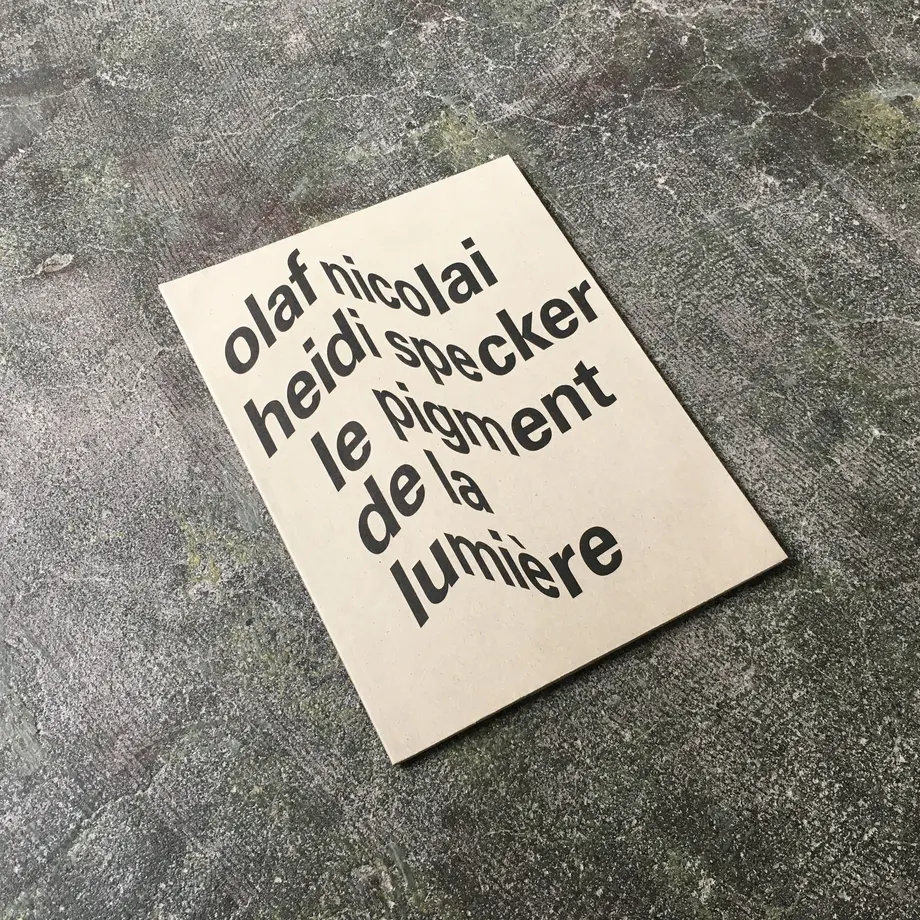 olaf nicolai
heidi specker
le pigment
de la
lumière